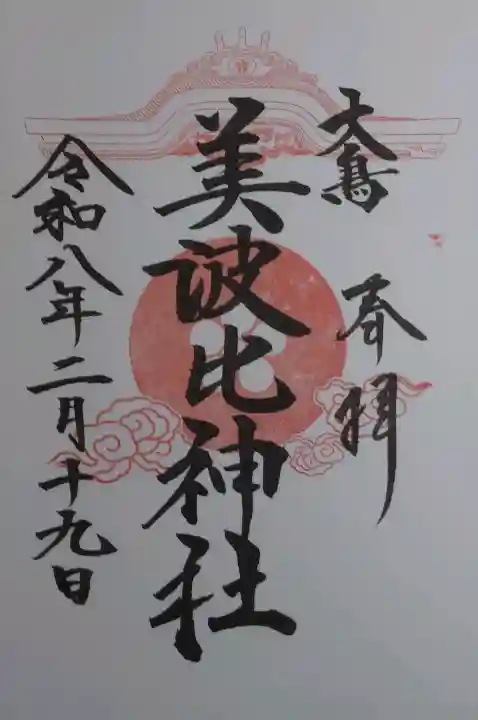 大鳥
奉拝
美波比神社
令和八年二月十九日